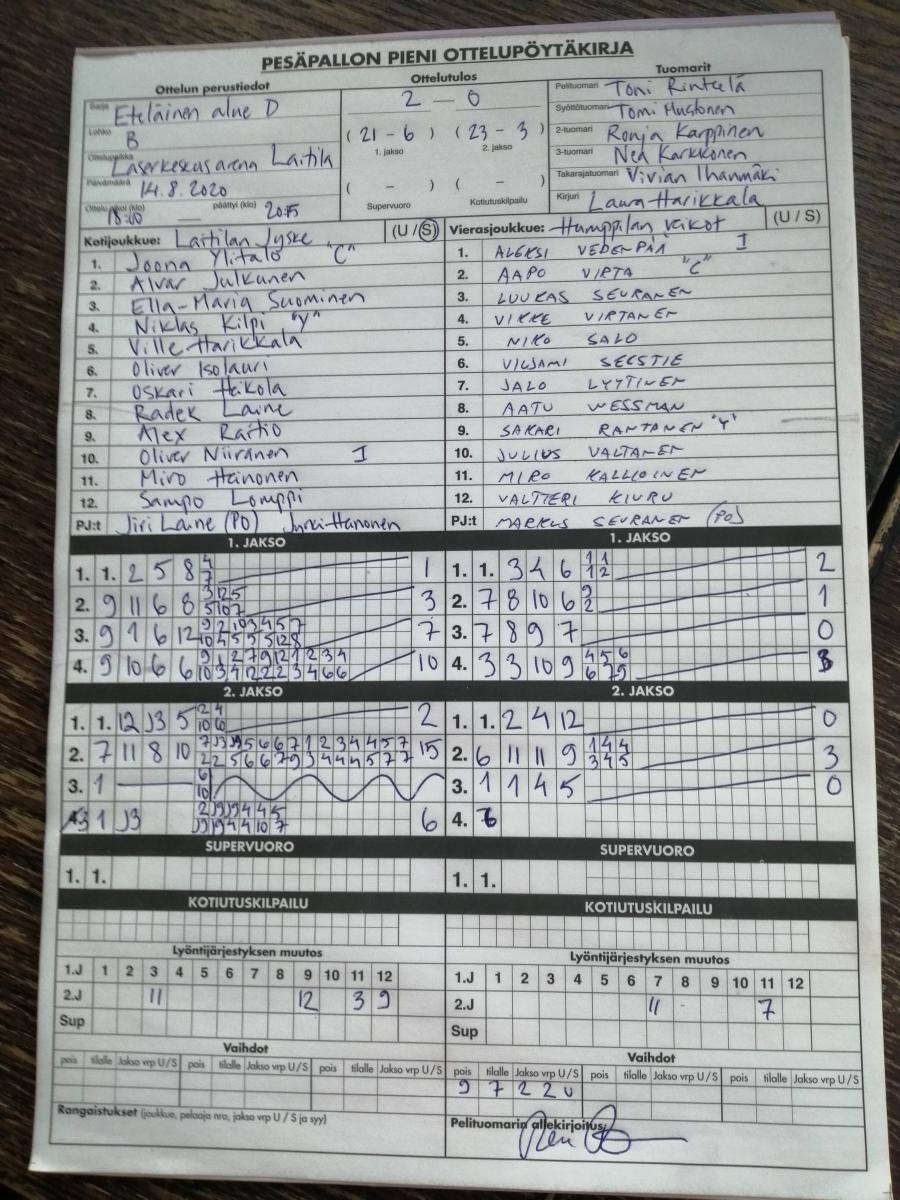 PESÄPALLON PIENI OTTELUPÖYTÄKIRJA
Ottelun perustiedot
Ottelutulos
Tuomarit
Sarja Eteläinen alue D
Lohko B
Ottelupaikka Laserkeskus areena Laitila
Päivämäärä 14.8.2020
Ottelu alkoi (klo) 18:00 päättyi (klo) 20:15
2 – 0
( 21 – 6 ) ( 23 – 3 )
1. jakso 2. jakso
( – ) ( – )
Supervuoro Kotiutuskilpailu
Pelituomari Toni Rintelä
Syöttötuomari Tomi Mustonen
2-tuomari Ronja Karppinen
3-tuomari Nea Karkkonen
Takarajatuomari Vivian Ihanmäki
Kirjuri Laura Harikkala
Kotijoukkue: Laitilan Jyske (U / S)
1. Joona Ylitalo "C"
2. Alvar Julkunen
3. Ella-Maria Suominen
4. Niklas Kilpi "Y"
5. Ville Harikkala
6. Oliver Isolauri
7. Oskari Heikola
8. Radek Laine
9. Alex Raitio
10. Oliver Niiranen I
11. Miro Heinonen
12. Sampo Lomppi
PJ:t Jiri Laine (PO)
Vierasjoukkue: Humppilan Veikot (U / S)
1. ALEKSI VEDENPÄÄ I
2. AAPO VIRTA "C"
3. LUUKAS SEURANEN
4. VIKKE VIRTANEN
5. NIKO SALO
6. VILJAMI SEESTIE
7. JALO LYYTINEN
8. AATU WESSMAN
9. SAKARI RANTANEN "Y"
10. JULIUS VALTANEN
11. MIRO KALLIOINEN
12. VALTTERI KIURU
PJ:t MARKUS SEURANEN (PO)
1. JAKSO
1. 1. 2 5 8 4 1
7
2. 9 11 6 8 3 12 5 3
5 10 7
3. 9 1 6 12 9 2 10 3 4 5 7 7
10 4 5 5 5 12 8
4. 9 10 6 6 9 1 2 7 9 12 1 2 3 4 10
10 3 4 12 2 2 3 4 6 6
1. JAKSO
1. 1. 3 4 6 1 1 2
1 2
2. 7 8 10 6 9 1
2
3. 7 8 9 7 0
4. 3 3 10 9 4 5 6 3
6 7 9
2. JAKSO
1. 1. 12 J3 5 2 4 2
10 6
2. 7 11 8 10 7 J3 J9 5 6 6 7 1 2 3 4 4 5 7 15
2 2 5 6 6 7 9 3 4 4 4 5 7 7
3. 1 6
10
3 1 J3 2 J9 J9 4 4 5 6
J9 J9 4 4 10 7
2. JAKSO
1. 1. 2 4 12 0
2. 6 11 11 9 1 4 4 3
3 4 5
3. 1 1 4 5 0
4. 6
SUPERVUORO
1. 1.
SUPERVUORO
1. 1.
KOTIUTUSKILPAILU
KOTIUTUSKILPAILU
Lyöntijärjestyksen muutos
1.J 1 2 3 4 5 6 7 8 9 10 11 12
2.J 11 12 3 9
Sup
Lyöntijärjestyksen muutos
1.J 1 2 3 4 5 6 7 8 9 10 11 12
2.J 11 7
Sup
Vaihdot
pois tilalle Jakso vrp U/S pois tilalle Jakso vrp U/S pois tilalle Jakso vrp U/S
Vaihdot
pois tilalle Jakso vrp U/S pois tilalle Jakso vrp U/S pois tilalle Jakso vrp U/S
9 7 2 2 U
Rangaistukset (joukkue, pelaaja nro, jakso vrp U / S ja syy)
Pelituomarin allekirjoitus